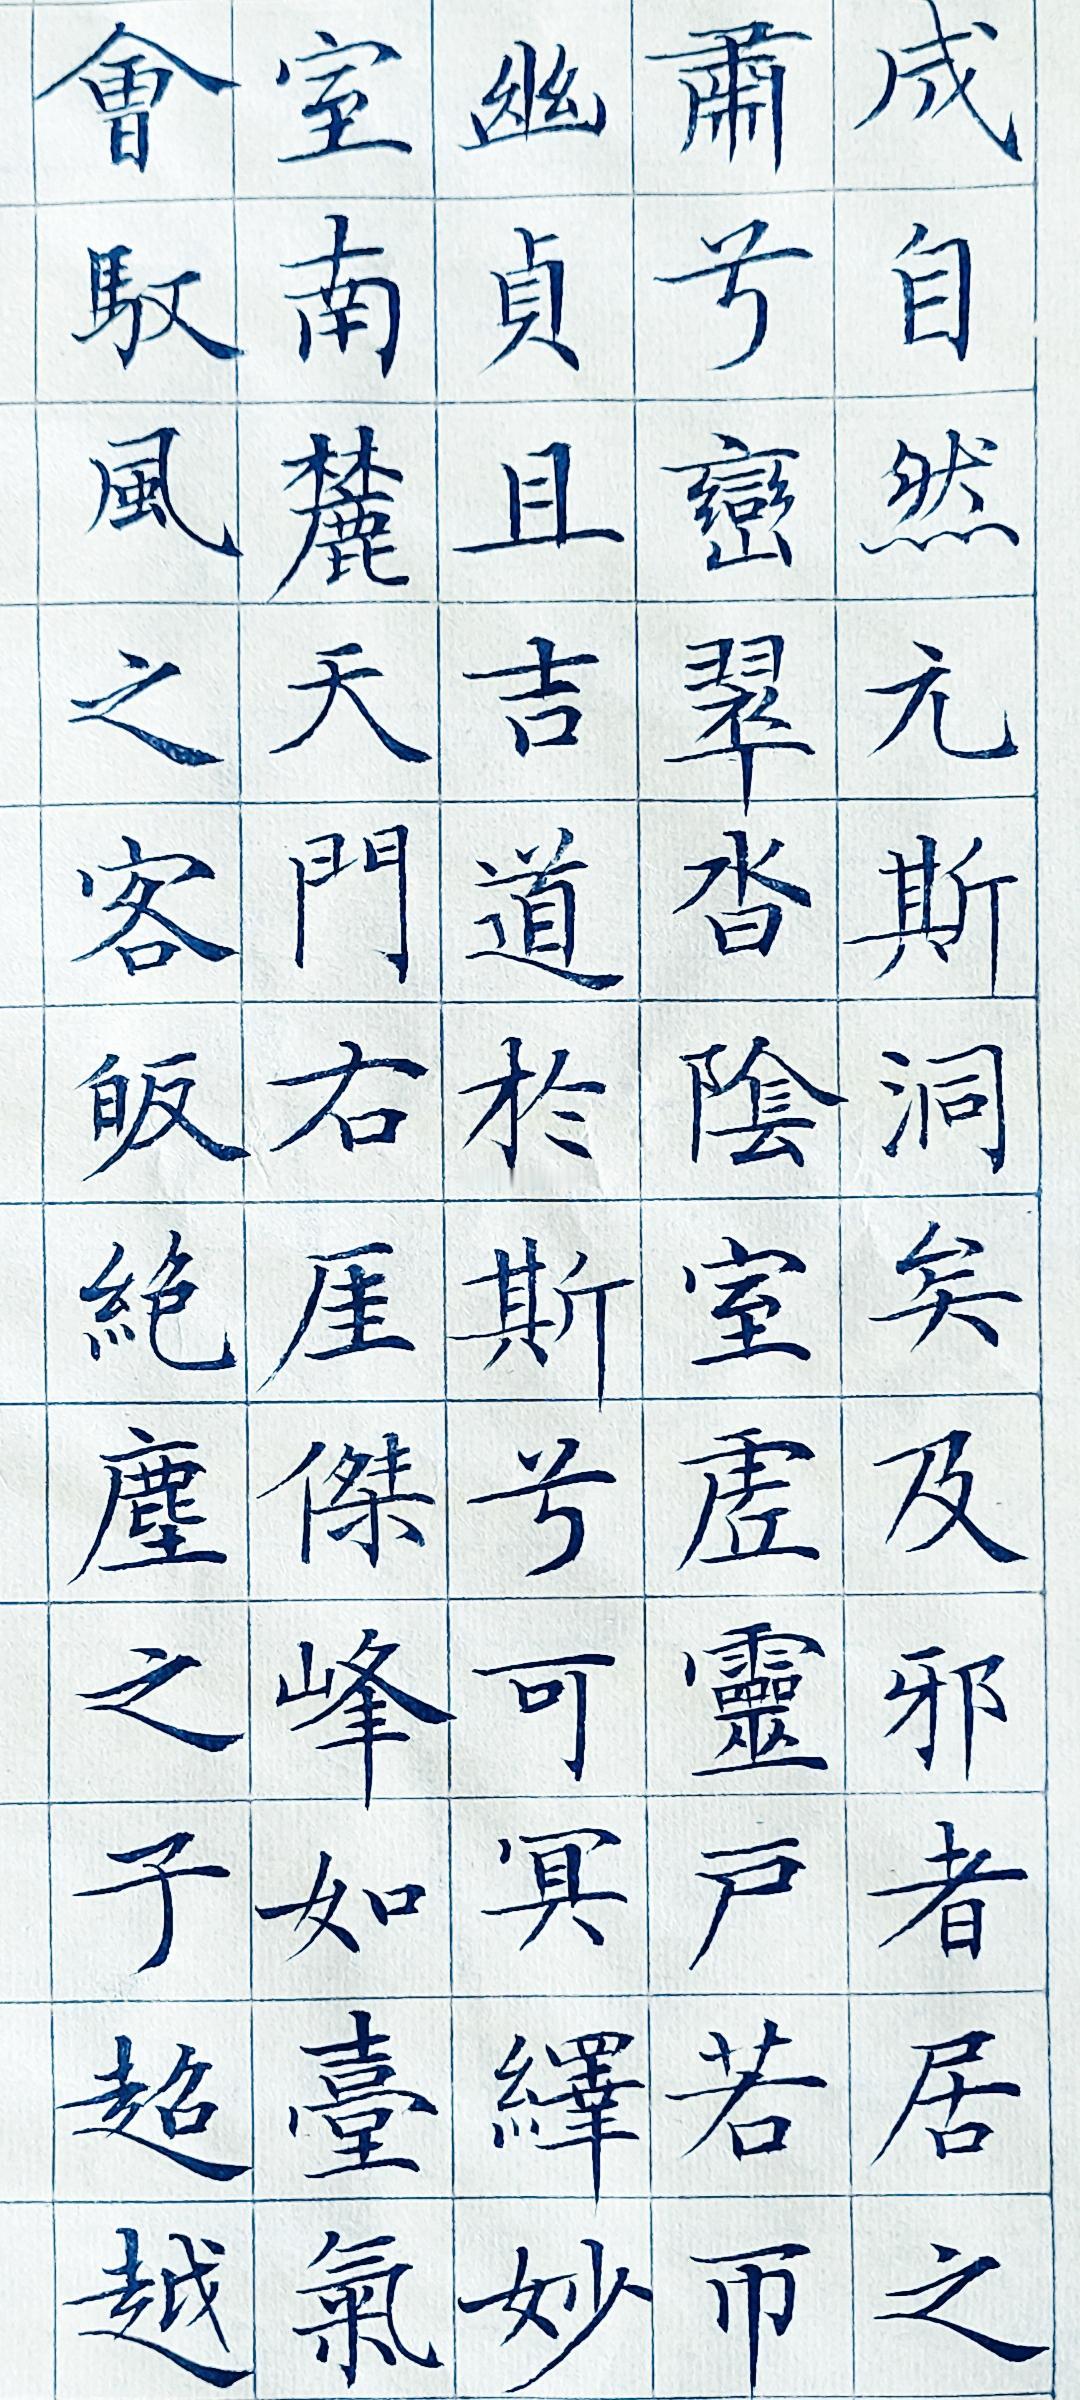 成自然元斯洞矣及邪者居之
肅兮巒翠沓隂室虛靈戶若帀
幽貞且吉道於斯兮可冥繹妙
室南麓天門右厓傑峰如臺氣
會馭風之客皈絕塵之子超越